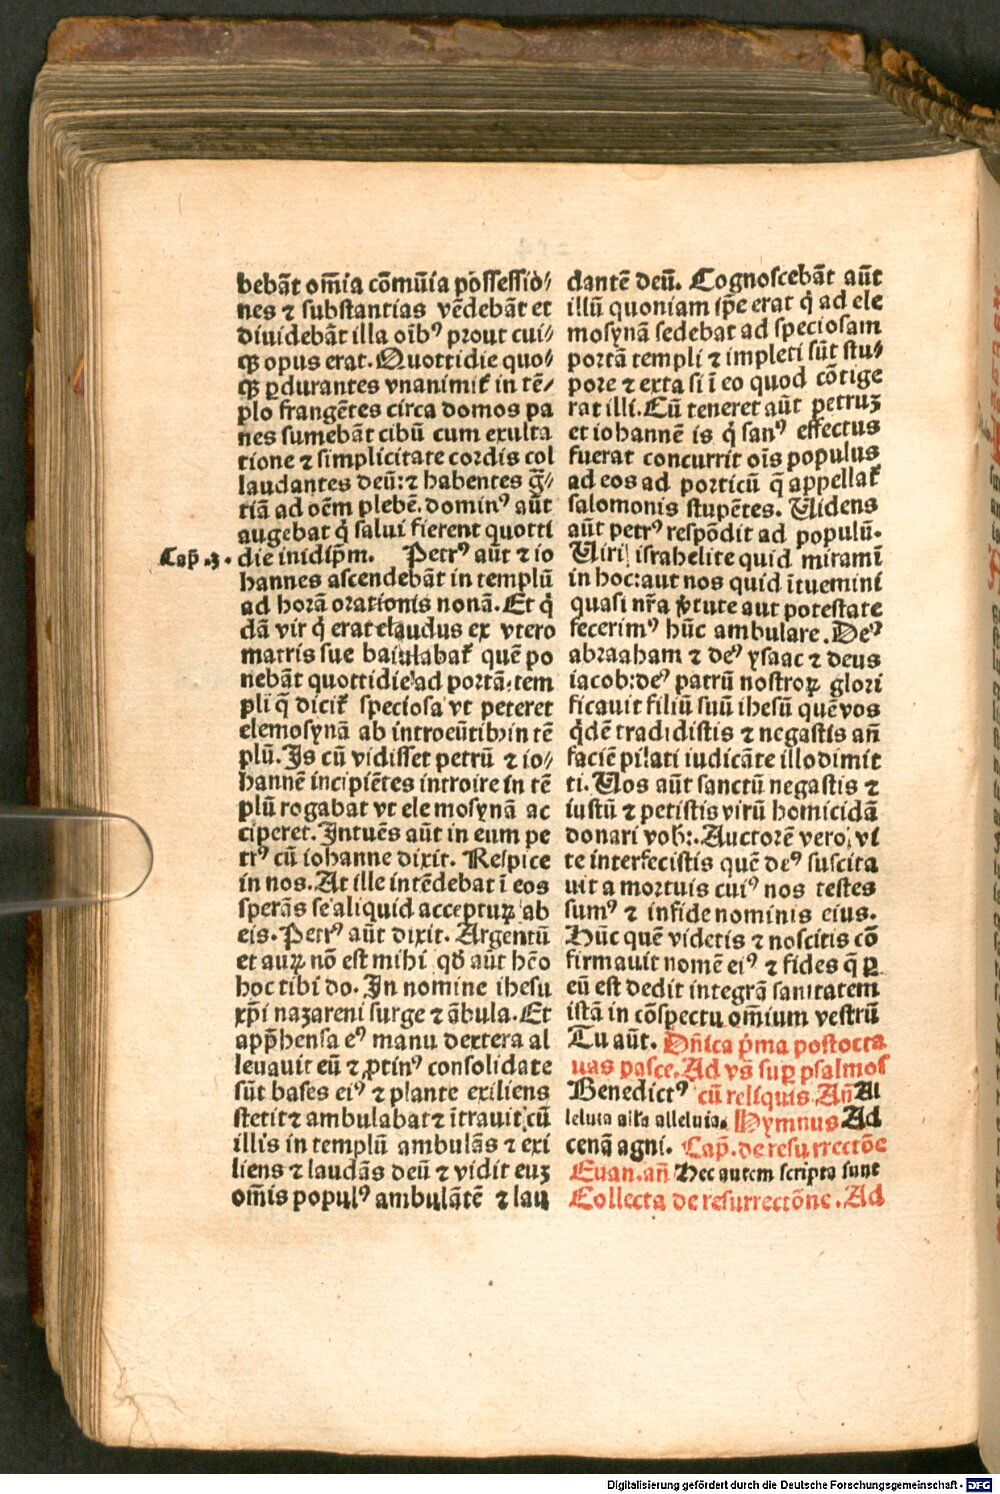 bebāt om̄ia cōmūia possessio/
nes ⁊ substantias vēdebāt et
diuidebāt illa oībꝰ prout cui/
qꝫ opus erat. Quottidie quo/
qꝫ ꝑdurantes vnanimit̄ in tē/
plo frangētes circa domos pa
nes sumebāt cibū cum exulta
tione ⁊ simplicitate cordis col
laudantes deū: ⁊ habentes gr̄/
tiā ad oēm plebē. dominꝰ aūt
augebat q̇ salui fierent quotti
Cap̄ .3. die inidip̄m. Petrꝰ aūt ⁊ io
hannes ascendebāt in templū
ad horā orationis nonā. Et q̇
dā vir q̇ erat claudus ex vtero
matris sue baiulabat̄ quē po
nebāt quottidie ad portā tem
pli q̄ dicit̄ speciosa vt peteret
elemosynā ab introeūtibꝰ in tē
plū. Is cū vidisset petrū ⁊ io/
hannē incipiētes introire in tē
plū rogabat vt elemosynā ac
ciperet. Intuēs aūt in eum pe
trꝰ cū iohanne dixit. Respice
in nos. At ille intēdebat ī eos
sperās se aliquid accepturꝝ ab
eis. Petrꝰ aūt dixit. Argentū
et aurꝝ nō est mihi qd̄ aūt hēo
hoc tibi do. In nomine ihesu
xp̄i nazareni surge ⁊ ābula. Et
app̄hensa eꝰ manu dextera al
leuauit eū ⁊ ꝓtinꝰ consolidate
sūt bases eiꝰ ⁊ plante exiliens
stetit ⁊ ambulabat ⁊ ītrauit cū
illis in templū ambulās ⁊ exi
liens ⁊ laudās deū ⁊ vidit euꝫ
om̄is populꝰ ambulātē ⁊ lau
dantē deū. Cognoscebāt aūt
illū quoniam ip̄e erat q̇ ad ele
mosynā sedebat ad speciosam
portā templi ⁊ impleti sūt stu/
pore ⁊ exta si ī eo quod cōtige
rat illi. Cū teneret aūt petruꝫ
et iohannē is q̇ sanꝰ effectus
fuerat concurrit oīs populus
ad eos ad porticū q̄ appellat̄
salomonis stupētes. Uidens
aūt petrꝰ respōdit ad populū.
Uiri israhelite quid miramī
in hoc: aut nos quid ītuemini
quasi nr̄a v̓tute aut potestate
fecerimꝰ hūc ambulare. Deꝰ
abraaham ⁊ deꝰ ysaac ⁊ deus
iacob: deꝰ patrū nostroꝝ glori
ficauit filiū suū ihesū quē vos
q̇dē tradidistis ⁊ negastis an̄
faciē pilati iudicāte illo dimit
ti. Uos aūt sanctū negastis ⁊
iustū ⁊ petistis virū homicidā
donari vob̄:. Auctorē vero vi
te interfecistis quē deꝰ suscita
uit a mortuis cuiꝰ nos testes
sumꝰ ⁊ in fide nominis eius.
Hūc quē videtis ⁊ noscitis cō
firmauit nomē eiꝰ ⁊ fides q̄ ꝑ
eū est dedit integrā sanitatem
istā in cōspectu om̄ium vestrū
Tu aūt. Dn̄ica p̄ma post octa
uas pasce. Ad vs̄ suꝑ psalmos
Benedictꝰ cū reliquis. An̄ Al
leluia all'a alleluia. Hymnus Ad
cenā agni. Cap̄. de resurrectōe
Euan. an̄ Hec autem scripta sunt
Collecta de resurrectōne. Ad
Digitalisierung gefördert durch die Deutsche Forschungsgemeinschaft - DFG